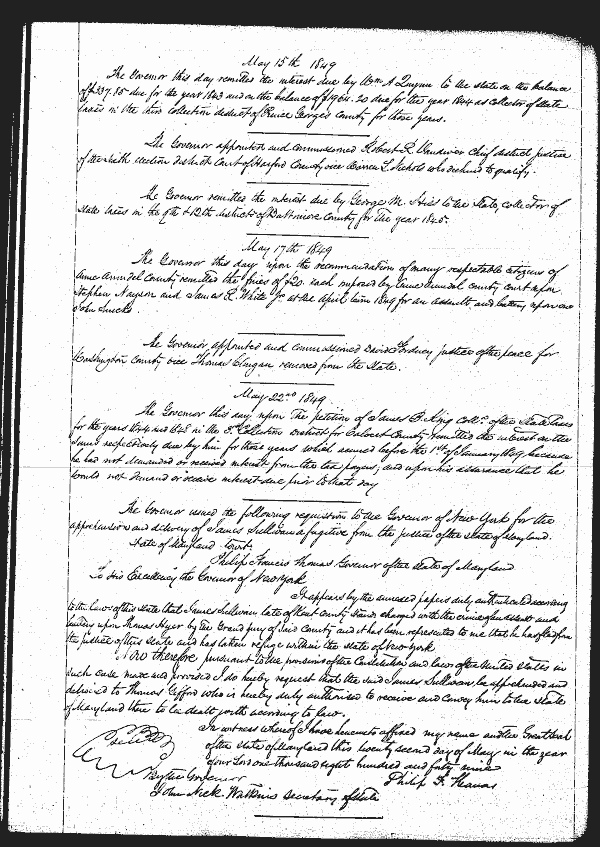 May 15th 1849
The Governor this day remitted the interest due by Wm A Quynn to the state on the balance
of $337.85 due for the year 1843 and on the balance of $1964.20 due for the year 1844 as collector of state
taxes in the collection district of Prince Georges county for those years.
The Governor appointed and commissioned Robert R. Vandiver Chief district justice
of the sixth election district Court of Harford County vice L. Nichols who declined to qualify.
The Governor remitted the interest due by George M. to the State, collector of
State taxes in the 9th & 12th districts of Baltimore County for the year 1845.
May 17th 1849
The Governor this day upon the recommendation of many respectable citizens of
Anne Arundel County remitted the fines of $20. each imposed by Anne Arundel county court upon
Stephen and James R. White Jr. at the April term 1849 for an assault and battery upon one
John
The Governor appointed and commissioned David justice of the peace for
Washington county vice Thomas removed from the State.
May 22nd 1849.
The Governor this day upon the petition of James B. King Collr. of the State Taxes
for the years 1844 and 1845 in the Collection District for Calvert County remitted the interest on the
same respectively due by him for those years which accrued before the 1st of January 1849, because
he had not demanded or received interest from the tax payers, and upon his assurance that he
would not demand or receive interest due prior to that day
The Governor issued the following requisition to the Governor of New York for the
apprehension and delivery of James Sullivan a fugitive from the justice of the state of Maryland.
State of Maryland
Philip Francis Thomas Governor of the State of Maryland
To His Excellency the Governor of New York
It appears by the annexed papers duly authenticated according
to the laws of this state that James Sullivan late of Kent County stands charged with the crime of assault and
battery upon Thomas Hyer by the Grand jury of said County and it has been represented to me that he has fled from
the justice of this state and has taken refuge within the state of New York
Now therefore pursuant to the provisions of the Constitution and laws of the United States in
such case made and provided I do hereby request that the said James Sullivan be apprehended and
delivered to Thomas Gifford who is hereby duly authorised to receive and convey him to the State
of Maryland there to be dealt with according to law.
In witness whereof I have hereunto affixed my name and the Great Seal
of the State of Maryland this twenty second day of May in the year
of our Lord one thousand eight hundred and forty nine
Philip F. Thomas
By the Governor
John Nick. Watkins Secretary of State